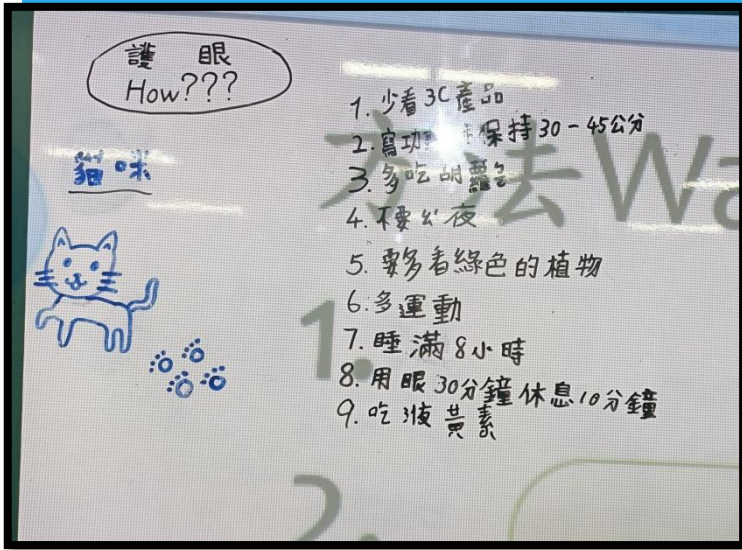 護 眼
How???
貓咪
方法 Wa
1. 少看3C產品
2. 寫功 保持30-45公分
3. 多吃胡蘿
4. 不要ㄠ夜
5. 要多看綠色的植物
6. 多運動
7. 睡滿8小時
8. 用眼30分鐘休息10分鐘
9. 吃液黃素
1.
2.